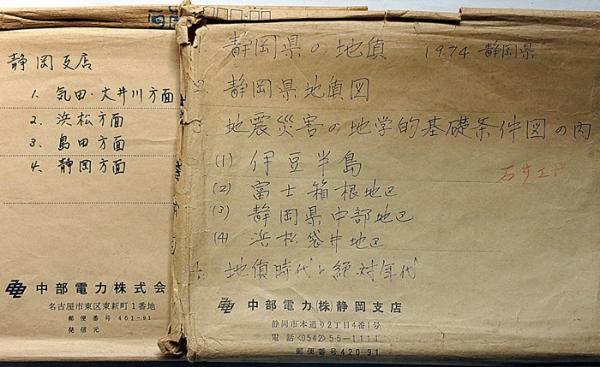 静岡支店
1. 気田・大井川方面
2. 浜松方面
3. 島田方面
4. 静岡方面
中部電力株式会
名古屋市東区東新町1番地
郵便番号 461-91
発信元
1. 静岡県の地質 1974 静岡県
2. 静岡県地質図
3. 地震災害の地学的基礎条件図の内
(1) 伊豆半島
(2) 富士箱根地区
(3) 静岡県中部地区
(4) 浜松袋井地区
4. 地質時代と絶対年代
中部電力(株)静岡支店
静岡市本通り2丁目4番1号
電話<0542>55-1111
郵便番号420-91